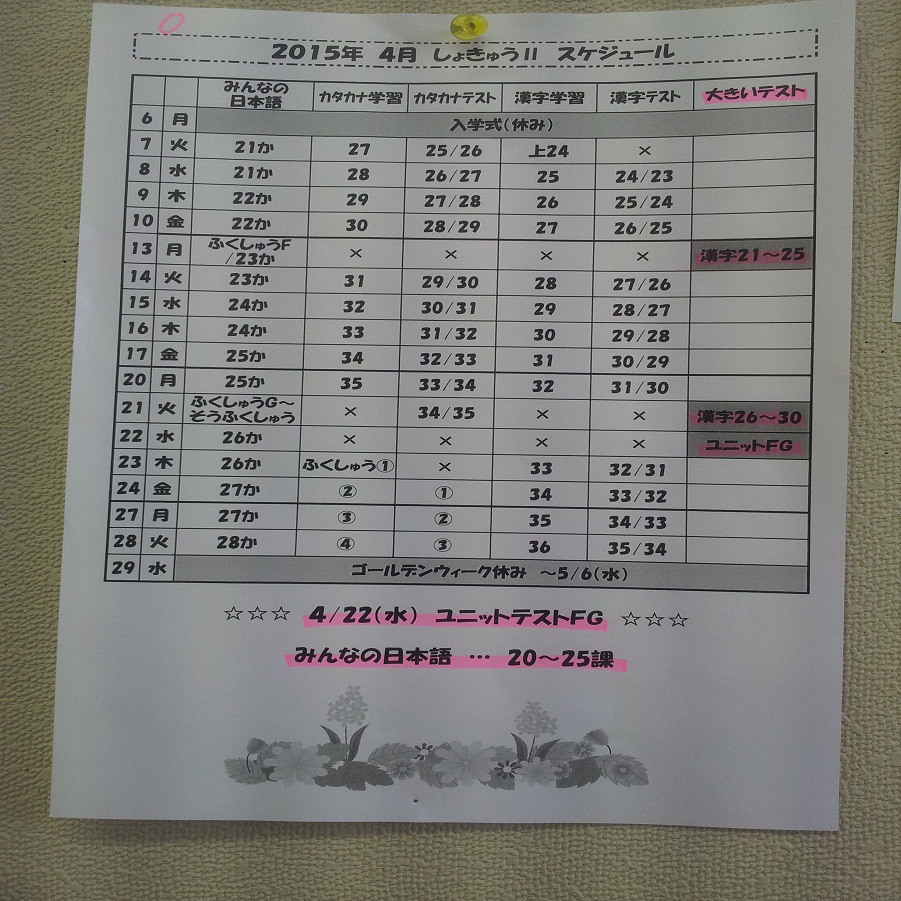 2015年 4月 しょきゅうⅡ スケジュール
みんなの日本語 カタカナ学習 カタカナテスト 漢字学習 漢字テスト 大きいテスト
6 月 入学式(休み)
7 火 21か 27 25/26 上24 ×
8 水 21か 28 26/27 25 24/23
9 木 22か 29 27/28 26 25/24
10 金 22か 30 28/29 27 26/25
13 月 ふくしゅうF/23か × × × × 漢字21~25
14 火 23か 31 29/30 28 27/26
15 水 24か 32 30/31 29 28/27
16 木 24か 33 31/32 30 29/28
17 金 25か 34 32/33 31 30/29
20 月 25か 35 33/34 32 31/30
21 火 ふくしゅうG~そうふくしゅう × 34/35 × × 漢字26~30
22 水 26か × × × × ユニットFG
23 木 26か ふくしゅう① × 33 32/31
24 金 27か ② ① 34 33/32
27 月 27か ③ ② 35 34/33
28 火 28か ④ ③ 36 35/34
29 水 ゴールデンウィーク休み ~5/6(水)
☆☆☆ 4/22(水) ユニットテストFG ☆☆☆
みんなの日本語 … 20~25課